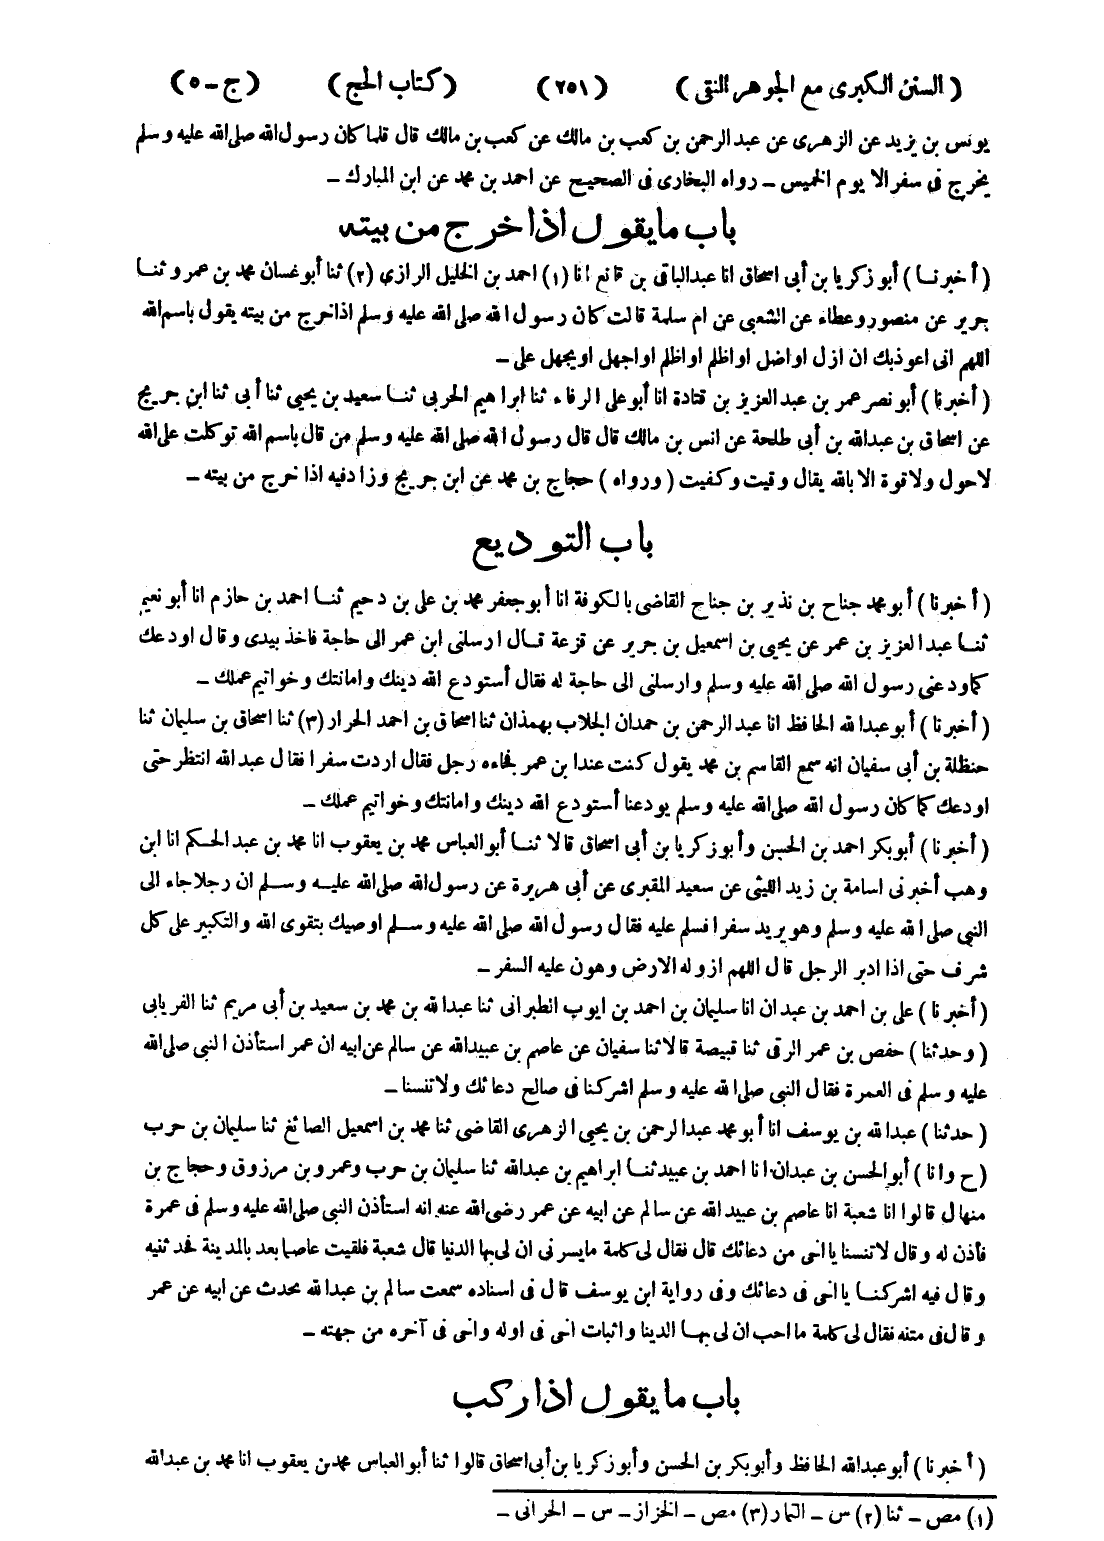 ( السنن الكبرى مع الجوهر النقى ) (٢٥١) ( كتاب الحج ) ( ج ـ ٥ )
يونس بن يزيد عن الزهرى عن عبد الرحمن بن كعب بن مالك عن كعب بن مالك قال قلما كان رسول الله صلى الله عليه وسلم
يخرج فى سفر الا يوم الخميس ـ رواه البخارى فى الصحيح عن احمد بن محمد عن ابن المبارك ـ
باب ما يقول اذا خرج من بيته
( أخبرنا ) أبو زكريا بن أبى اسحاق انا عبد الباقى بن قانع انا (١) احمد بن الخليل الرازي (٢) ثنا أبو غسان محمد بن عمرو ثنا
جرير عن منصور وعطاء عن الشعبى عن ام سلمة قالت كان رسول الله صلى الله عليه وسلم اذا خرج من بيته يقول باسم الله
اللهم انى اعوذ بك ان ازل او اضل او اظلم او اظلم او اجهل او يجهل على ـ
( أخبرنا ) أبو نصر عمر بن عبد العزيز بن قتادة انا أبو على الرفاء ثنا ابراهيم الحربى ثنا سعيد بن يحيى ثنا أبى ثنا ابن جريج
عن اسحاق بن عبد الله بن أبى طلحة عن انس بن مالك قال قال رسول الله صلى الله عليه وسلم من قال باسم الله توكلت على الله
لا حول ولا قوة الا بالله يقال وقيت وكفيت ( ورواه ) حجاج بن محمد عن ابن جريج وزاد فيه اذا خرج من بيته ـ
باب التوديع
( أخبرنا ) أبو محمد جناح بن نذير بن جناح القاضى بالكوفة انا أبو جعفر محمد بن على بن دحيم ثنا احمد بن حازم انا أبو نعيم
ثنا عبد العزيز بن عمر عن يحيى بن اسمعيل بن جرير عن قزعة قال ارسلنى ابن عمر الى حاجة فاخذ بيدى وقال اودعك
كما ودعنى رسول الله صلى الله عليه وسلم وارسلنى الى حاجة له فقال أستودع الله دينك وامانتك وخواتيم عملك ـ
( أخبرنا ) أبو عبد الله الحافظ انا عبد الرحمن بن حمدان الجلاب بهمذان ثنا اسحاق بن احمد الحرار (٣) ثنا اسحاق بن سليمان ثنا
حنظلة بن أبى سفيان انه سمع القاسم بن محمد يقول كنت عند ابن عمر فجاءه رجل فقال اردت سفرا فقال عبد الله انتظر حتى
اودعك كما كان رسول الله صلى الله عليه وسلم يودعنا أستودع الله دينك وامانتك وخواتيم عملك ـ
( أخبرنا ) أبو بكر احمد بن الحسن وأبو زكريا بن أبى اسحاق قالا ثنا أبو العباس محمد بن يعقوب انا محمد بن عبد الحكم انا ابن
وهب أخبرنى اسامة بن زيد الليثى عن سعيد المقبرى عن أبى هريرة عن رسول الله صلى الله عليه وسلم ان رجلا جاء الى
النبى صلى الله عليه وسلم وهو يريد سفرا فسلم عليه فقال رسول الله صلى الله عليه وسلم اوصيك بتقوى الله والتكبير على كل
شرف حتى اذا ادبر الرجل قال اللهم ازو له الارض وهون عليه السفر ـ
( أخبرنا ) على بن احمد بن عبدان انا سليمان بن احمد بن ايوب الطبرانى ثنا عبد الله بن محمد بن سعيد بن أبى مريم ثنا الفريابى
( وحدثنا ) حفص بن عمر الرقى ثنا قبيصة قالا ثنا سفيان عن عاصم بن عبيد الله عن سالم عن ابيه ان عمر استأذن النبى صلى الله
عليه وسلم فى العمرة فقال النبى صلى الله عليه وسلم اشركنا فى صالح دعائك ولا تنسنا ـ
( حدثنا ) عبد الله بن يوسف انا أبو محمد عبد الرحمن بن يحيى الزهرى القاضى ثنا محمد بن اسمعيل الصائغ ثنا سليمان بن حرب
( ح وانا ) أبو الحسن بن عبدان انا احمد بن عبيد ثنا ابراهيم بن عبد الله ثنا سليمان بن حرب وعمرو بن مرزوق وحجاج بن
منهال قالوا انا شعبة انا عاصم بن عبيد الله عن سالم عن ابيه عن عمر رضى الله عنه انه استأذن النبى صلى الله عليه وسلم فى عمرة
فأذن له وقال لا تنسنا يا اخى من دعائك قال فقال لى كلمة ما يسرنى ان لى بها الدنيا قال شعبة فلقيت عاصما بعد بالمدينة فحدثنيه
وقال فيه اشركنا يا اخى فى دعائك وفى رواية ابن يوسف قال فى اسناده سمعت سالم بن عبد الله يحدث عن ابيه عن عمر
وقال فى متنه فقال لى كلمة ما احب ان لى بها الدينا واثبات اخى فى اوله واخى فى آخره من جهته ـ
باب ما يقول اذا ركب
( أخبرنا ) أبو عبد الله الحافظ وأبو بكر بن الحسن وأبو زكريا بن أبى اسحاق قالوا ثنا أبو العباس محمد بن يعقوب انا محمد بن عبد الله
(١) مص ـ ثنا (٢) س ـ التمار (٣) مص ـ الخزاز ـ س ـ الحرانى ـ